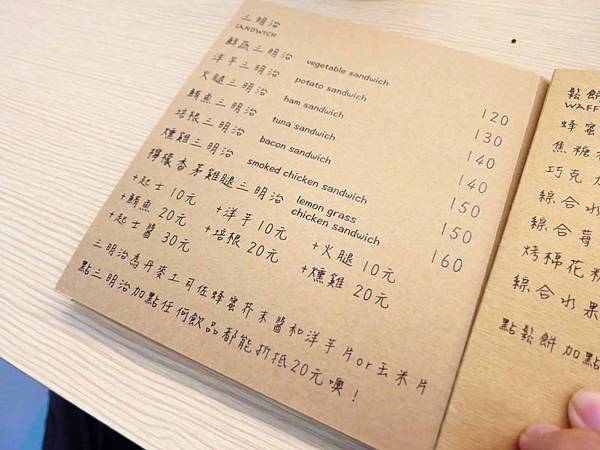 三明治
SANDWICH
鮮蔬三明治 vegetable sandwich 120
洋芋三明治 potato sandwich 130
火腿三明治 ham sandwich 140
鮪魚三明治 tuna sandwich 140
培根三明治 bacon sandwich 150
燻雞三明治 smoked chicken sandwich 150
檸檬香茅雞腿三明治 lemon grass chicken sandwich 160
+起士 10元 +洋芋 10元 +火腿 10元
+鮪魚 20元 +培根 20元 +燻雞 20元
+起士醬 30元
三明治為丹麥土司佐蜂蜜芥末醬和洋芋片or玉米片
點三明治加點任何飲品都能折抵20元噢！
鬆餅
WAFF
蜂蜜
焦糖
巧克力
綜合水
綜合莓
烤棉花糖
綜合水果
點鬆餅加點